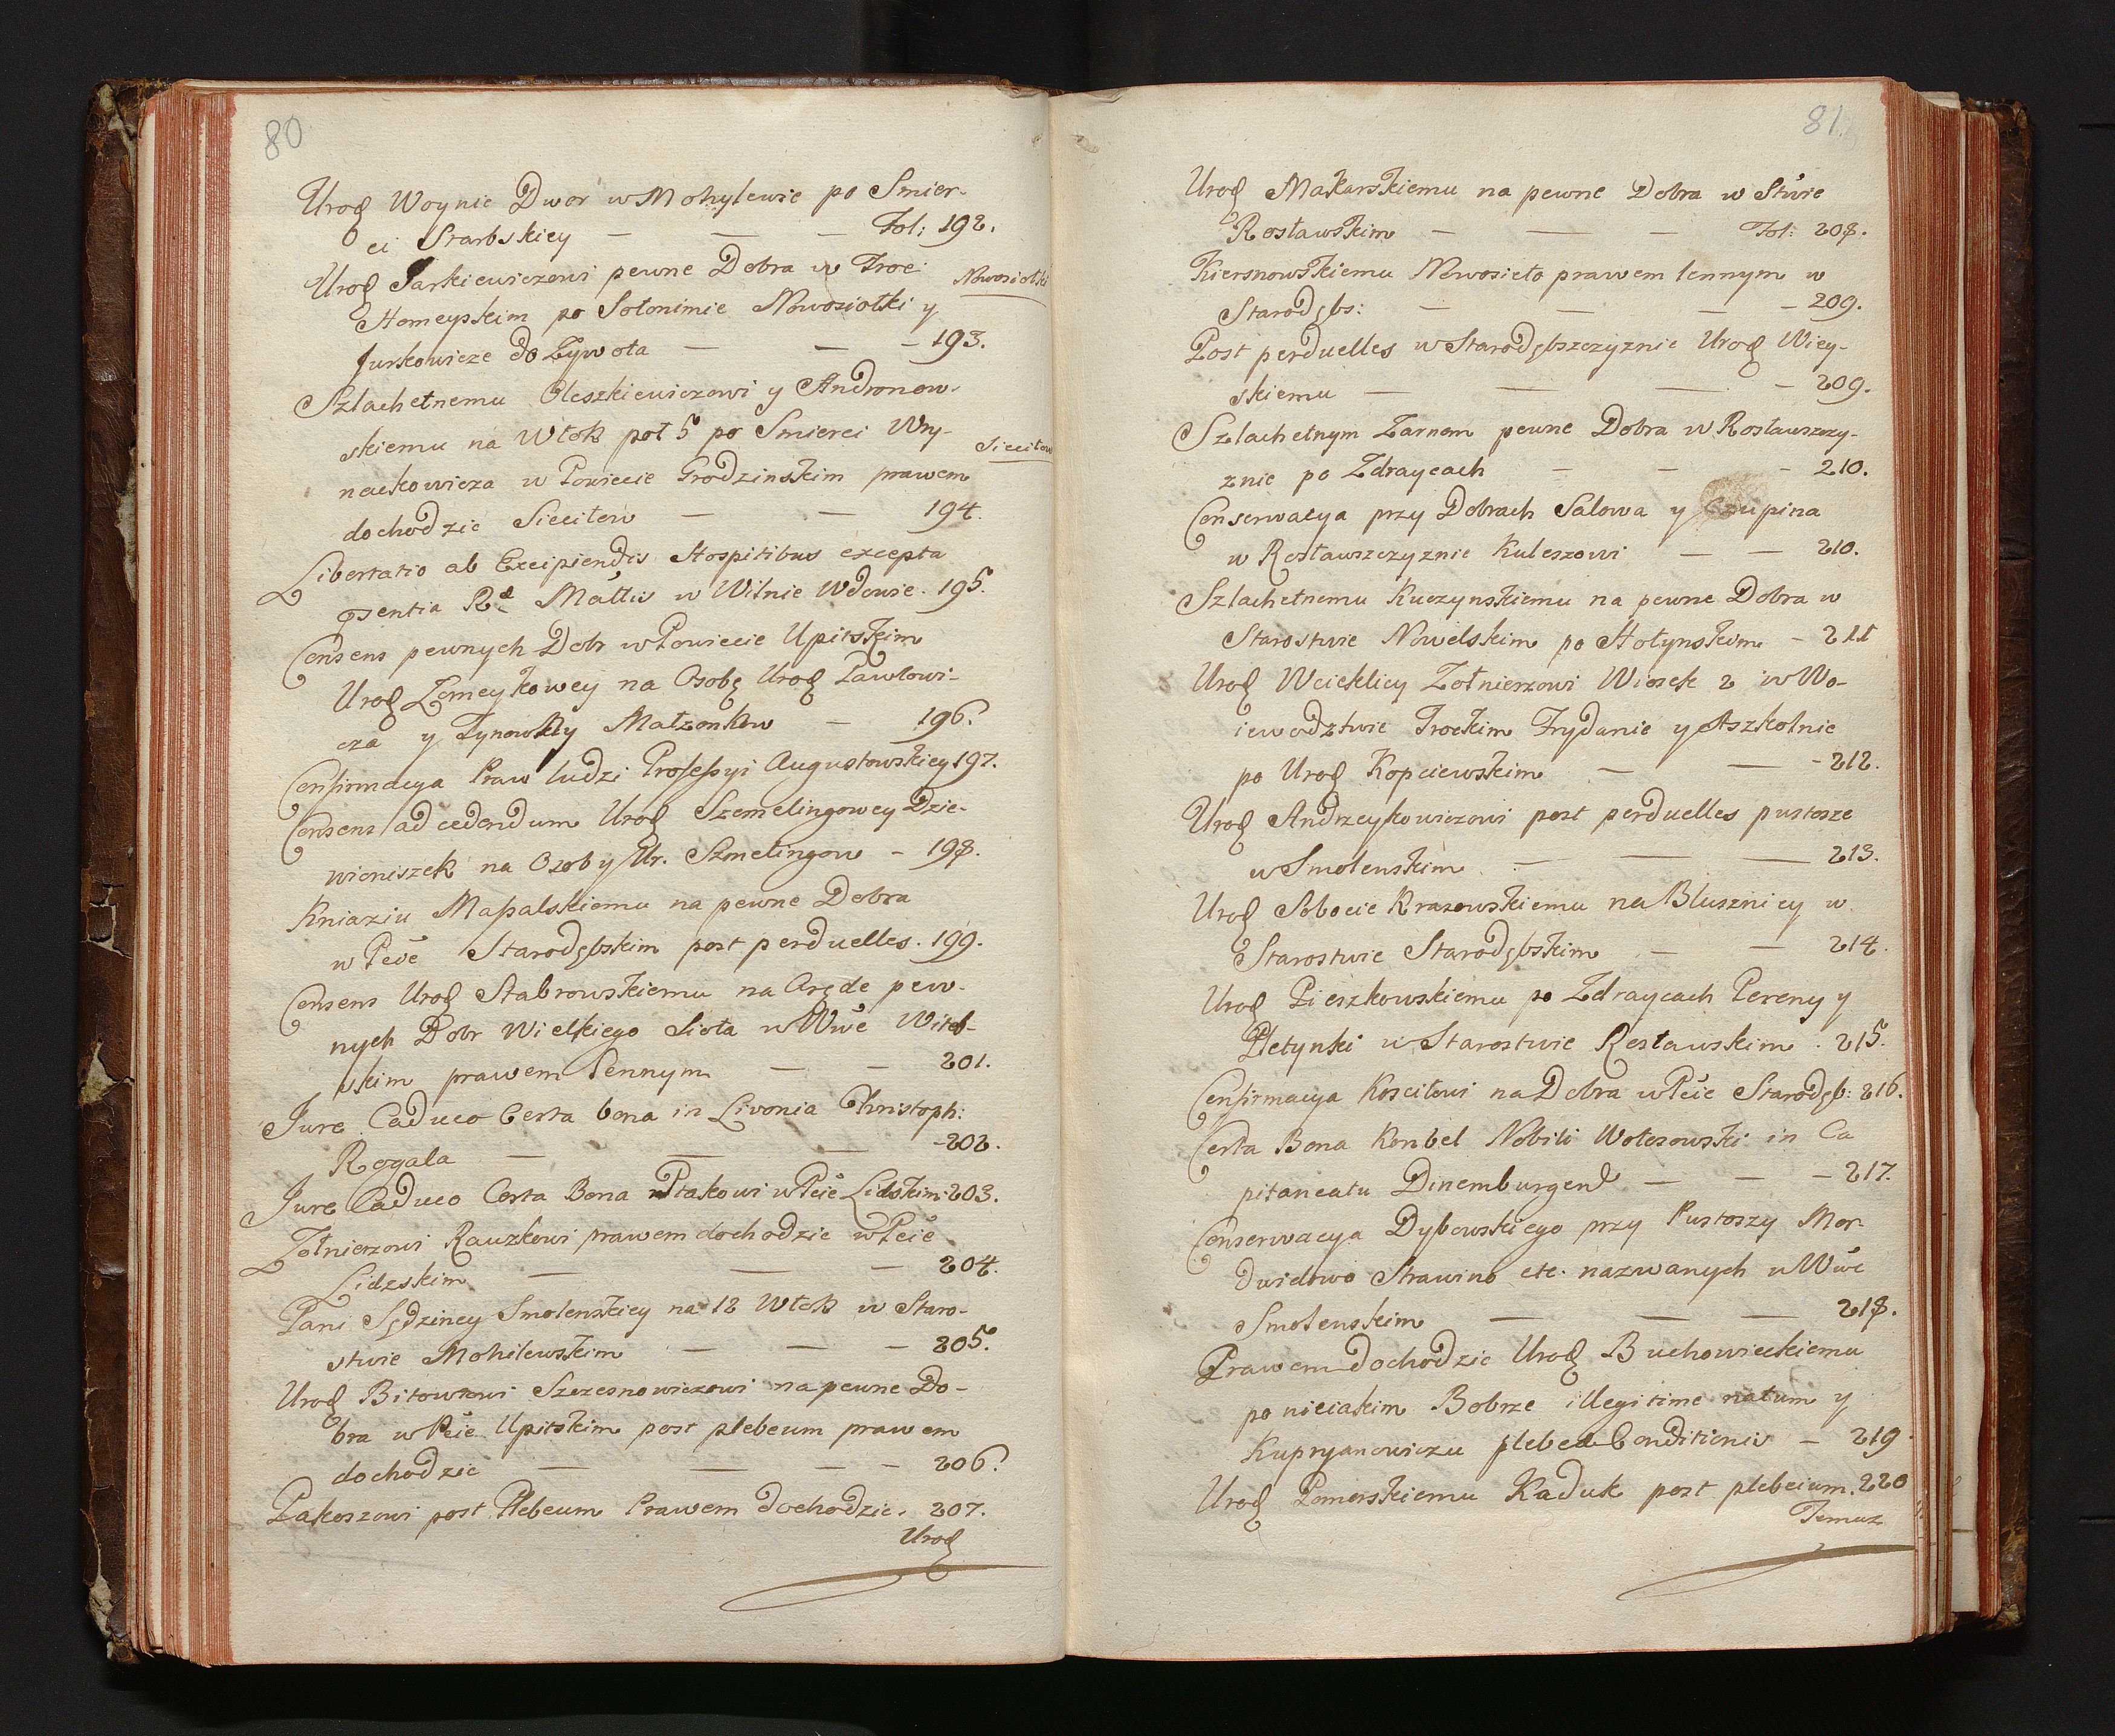 80
Urod Woynie Dwor w Mohylewie po Smier-
ci Skarbskiey — — — Fol: 192.
Urod Jarkiewiczowi pewne Dobra w Troc:
Nowosiołki
Homeyskim po Sołonimie Nowosiołki y
Jurkowicze do Zywota — — — 193.
Szlachetnemu Oleszkiewiczowi y Andronow-
skiemu na Włok poł 5 po Smierci Wry-
Siecitow
nackowicza w Powiecie Grodzinskim prawem
dochodzic Siecitow — — 194.
Libertatio ab Excipiendis Hospitibus excepta
psentia Rᵉ Mattis w Wilnie Wdowie. 195.
Consens pewnych Dobr w Powiecie Upitskim
Urod Zomeykowey na Osobę Urod Pawłowi-
cza y Tynowsky Małzonkow — 196.
Confirmacya Praw ludzi Professyi Augustowskiey 197.
Consens ad cedendum Urod Szemelingowey Dzie-
wieniszek na Osoby Ur. Szmelingow — 198.
Kniaziu Massalskiemu na pewne Dobra
w Pcie Starodębskim post perduelles. 199.
Consens Urod Stabrowskiemu na Arędę pew-
nych Dobr Wielkiego Sioła w Wwie Witeb-
skim prawem lennym — — 201.
Jure Caduco Certa bona in Livonia Christoph:
Rogala — — — — 202.
Jure Caduco Certa Bona Ptakowi w Pcie Lidzkim. 203.
Zołnierzowi Rauzkowi prawem dochodzic w Pcie
Lidzskim — — — 204.
Pani Sędziney Smolenskiey na 12 Włok w Staro-
stwie Mohilewskim — — — 205.
Urod Bitowtowi Szczesnowiczowi na pewne Do-
bra w Pcie Upitskim post plebeum prawem
dochodzic — — — — 206.
Pakoszowi post Plebeum Prawem dochodzic. 207.
Urod
81.
Urod Makarskiemu na pewne Dobra w Stwie
Rosławskim — — — Fol: 208.
Kiersnowskiemu Nowosieło prawem lennym w
Starodębs: — — — — 209.
Post perduelles w Starodębszczyznie Urod Wiey-
skiemu — — — — 209.
Szlachetnym Zarnom pewne Dobra w Rosławszczy-
znie po Zdraycach — — — 210.
Conserwacya przy Dobrach Salowa y Czupina
w Rosławszczyznie Kuleszowi — — 210.
Szlachetnemu Kuczynskiemu na pewne Dobra w
Starostwie Newelskim po Hołynskim — 211
Urod Wcieklicy Zołnierzowi Wiosek 2 w Wo-
iewodztwie Trockim Frydanie y Aszkolnie
po Urod Kopciewskim — — — 212.
Urod Andrzeykowiczowi post perduelles pustosze
w Smolenskim — — — 213.
Urod Sobocie Krasowskiemu na Blusznicy w
Starostwie Starodębskim — — 214.
Urod Pieszkowskiemu po Zdraycach Pereny y
Pletynki w Starostwie Rosławskim. 215.
Confirmacya Kosciłowi na Dobra w Pcie Starodęb: 216.
Certa Bona Konbel Nobili Wolesowski in Ca
pitaneatu Dinemburgen — — — 217.
Conserwacya Dybowskiego przy Pustoszy Mor-
dwidowo Strawino etc. nazwanych w Wwie
Smolenskim — — — 218.
Prawem dochodzic Urod Buchowieckiemu
po nieiakim Bobrze illegitime natum y
Kupryanowiczu plebea Conditionis — 219.
Urod Pomorskiemu Kaduk post plebeium. 220
Temuz